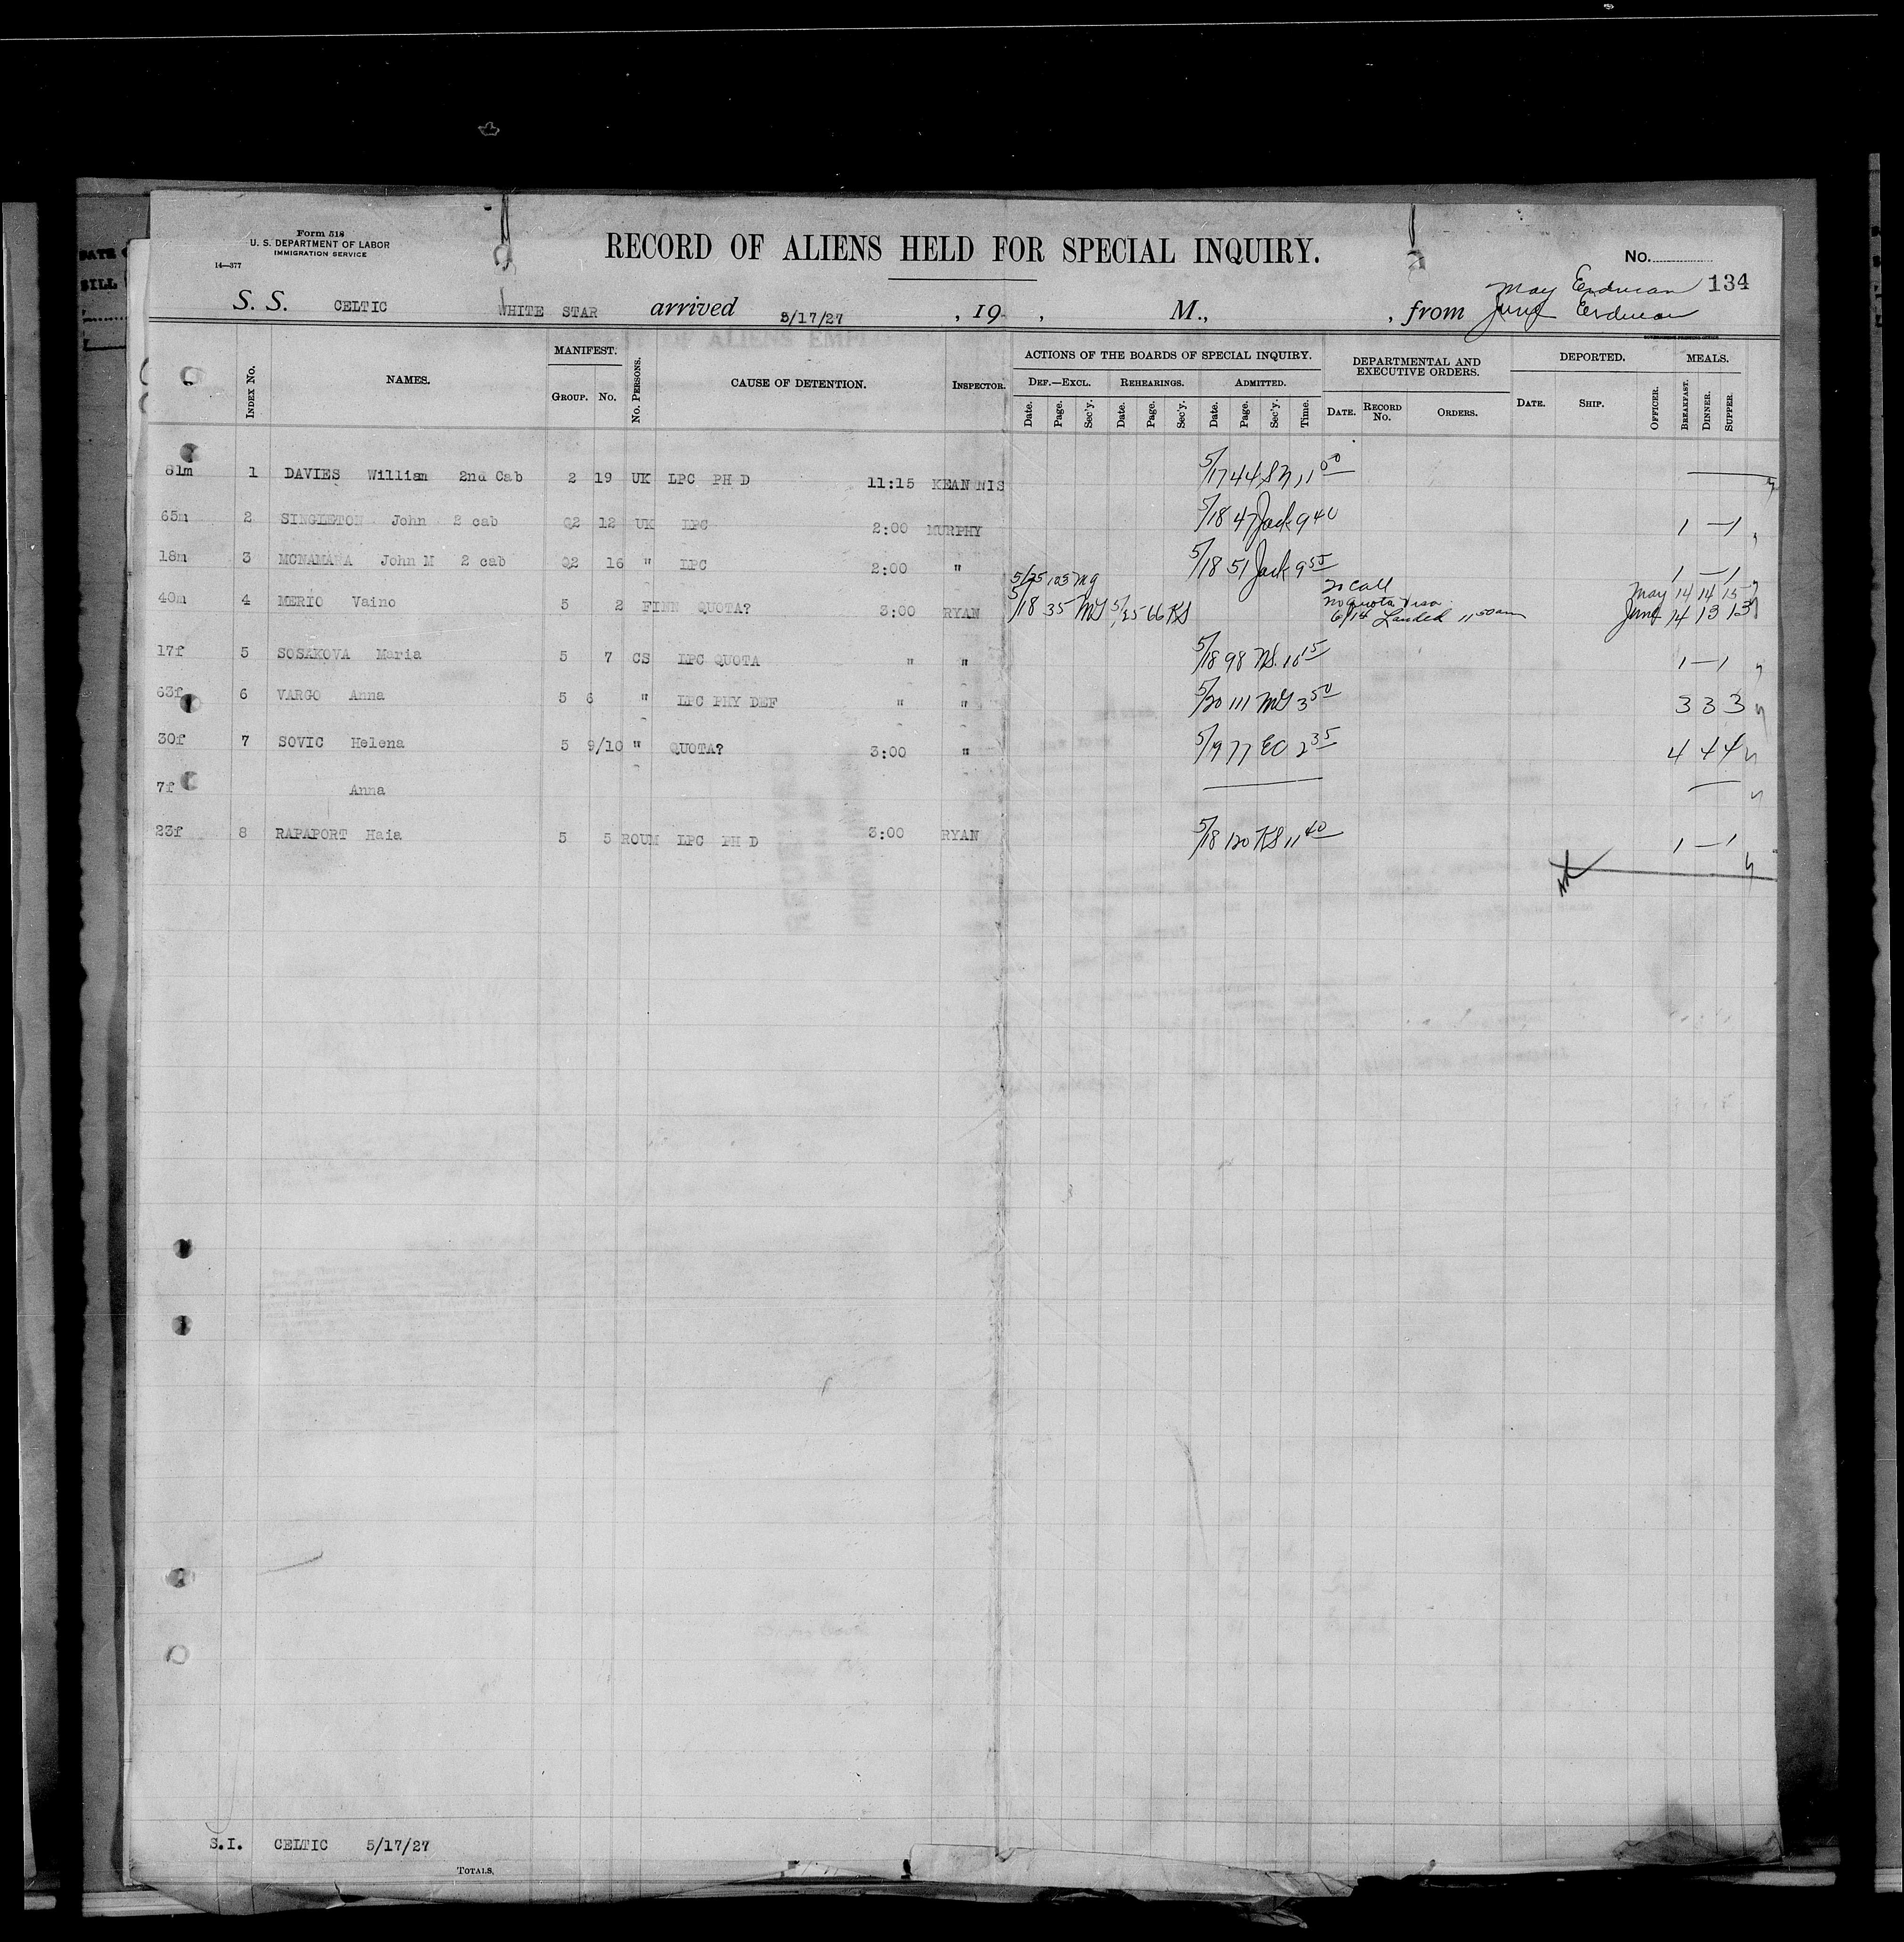 Form 518
U. S. DEPARTMENT OF LABOR
IMMIGRATION SERVICE
14—377
RECORD OF ALIENS HELD FOR SPECIAL INQUIRY.
No.
134
May Erdman
S. S. CELTIC WHITE STAR arrived 5/17/27, 19 , M., , from June Erdman
INDEX No. NAMES. MANIFEST. GROUP. No. No. PERSONS. CAUSE OF DETENTION. INSPECTOR. ACTIONS OF THE BOARDS OF SPECIAL INQUIRY. DEPARTMENTAL AND EXECUTIVE ORDERS. DEPORTED. MEALS.
DEF.—EXCL. REHEARINGS. ADMITTED.
Date. Page. Sec'y. Date. Page. Sec'y. Date. Page. Sec'y. Time. DATE. RECORD No. ORDERS. DATE. SHIP. OFFICER. BREAKFAST. DINNER. SUPPER.
61m 1 DAVIES William 2nd Cab 2 19 UK LPC PH D 11:15 KEAN NIS 5/17 44 11 00
65m 2 SINGLETON John 2 cab Q2 12 UK LPC 2:00 MURPHY 5/18 47 Jack 9 40 1 — 1
18m 3 MCNAMARA John M 2 cab Q2 16 " LPC 2:00 " 5/18 51 Jack 9 55 1 — 1
5/25 103 MG no call May 14 14 15
40m 4 MERIO Vaino 5 2 FINN QUOTA? 3:00 RYAN 5/18 35 MG 5/25 66 KS no quota visa
6/14 Landed 11 50 am June 14 13 13
17f 5 SOSAKOVA Maria 5 7 CS LPC QUOTA " " 5/18 98 NS. 10 15 1 — 1
63f 6 VARGO Anna 5 6 " LPC PHY DEF " " 5/20 111 MG 3 50 3 3 3
30f 7 SOVIC Helena 5 9/10 " QUOTA? 3:00 " 5/19 77 EO 2 35 4 4 4
7f Anna
23f 8 RAPAPORT Haia 5 5 ROUM LPC PH D 3:00 RYAN 5/18 120 KS 11 40 1 — 1
S.I. CELTIC 5/17/27
TOTALS,